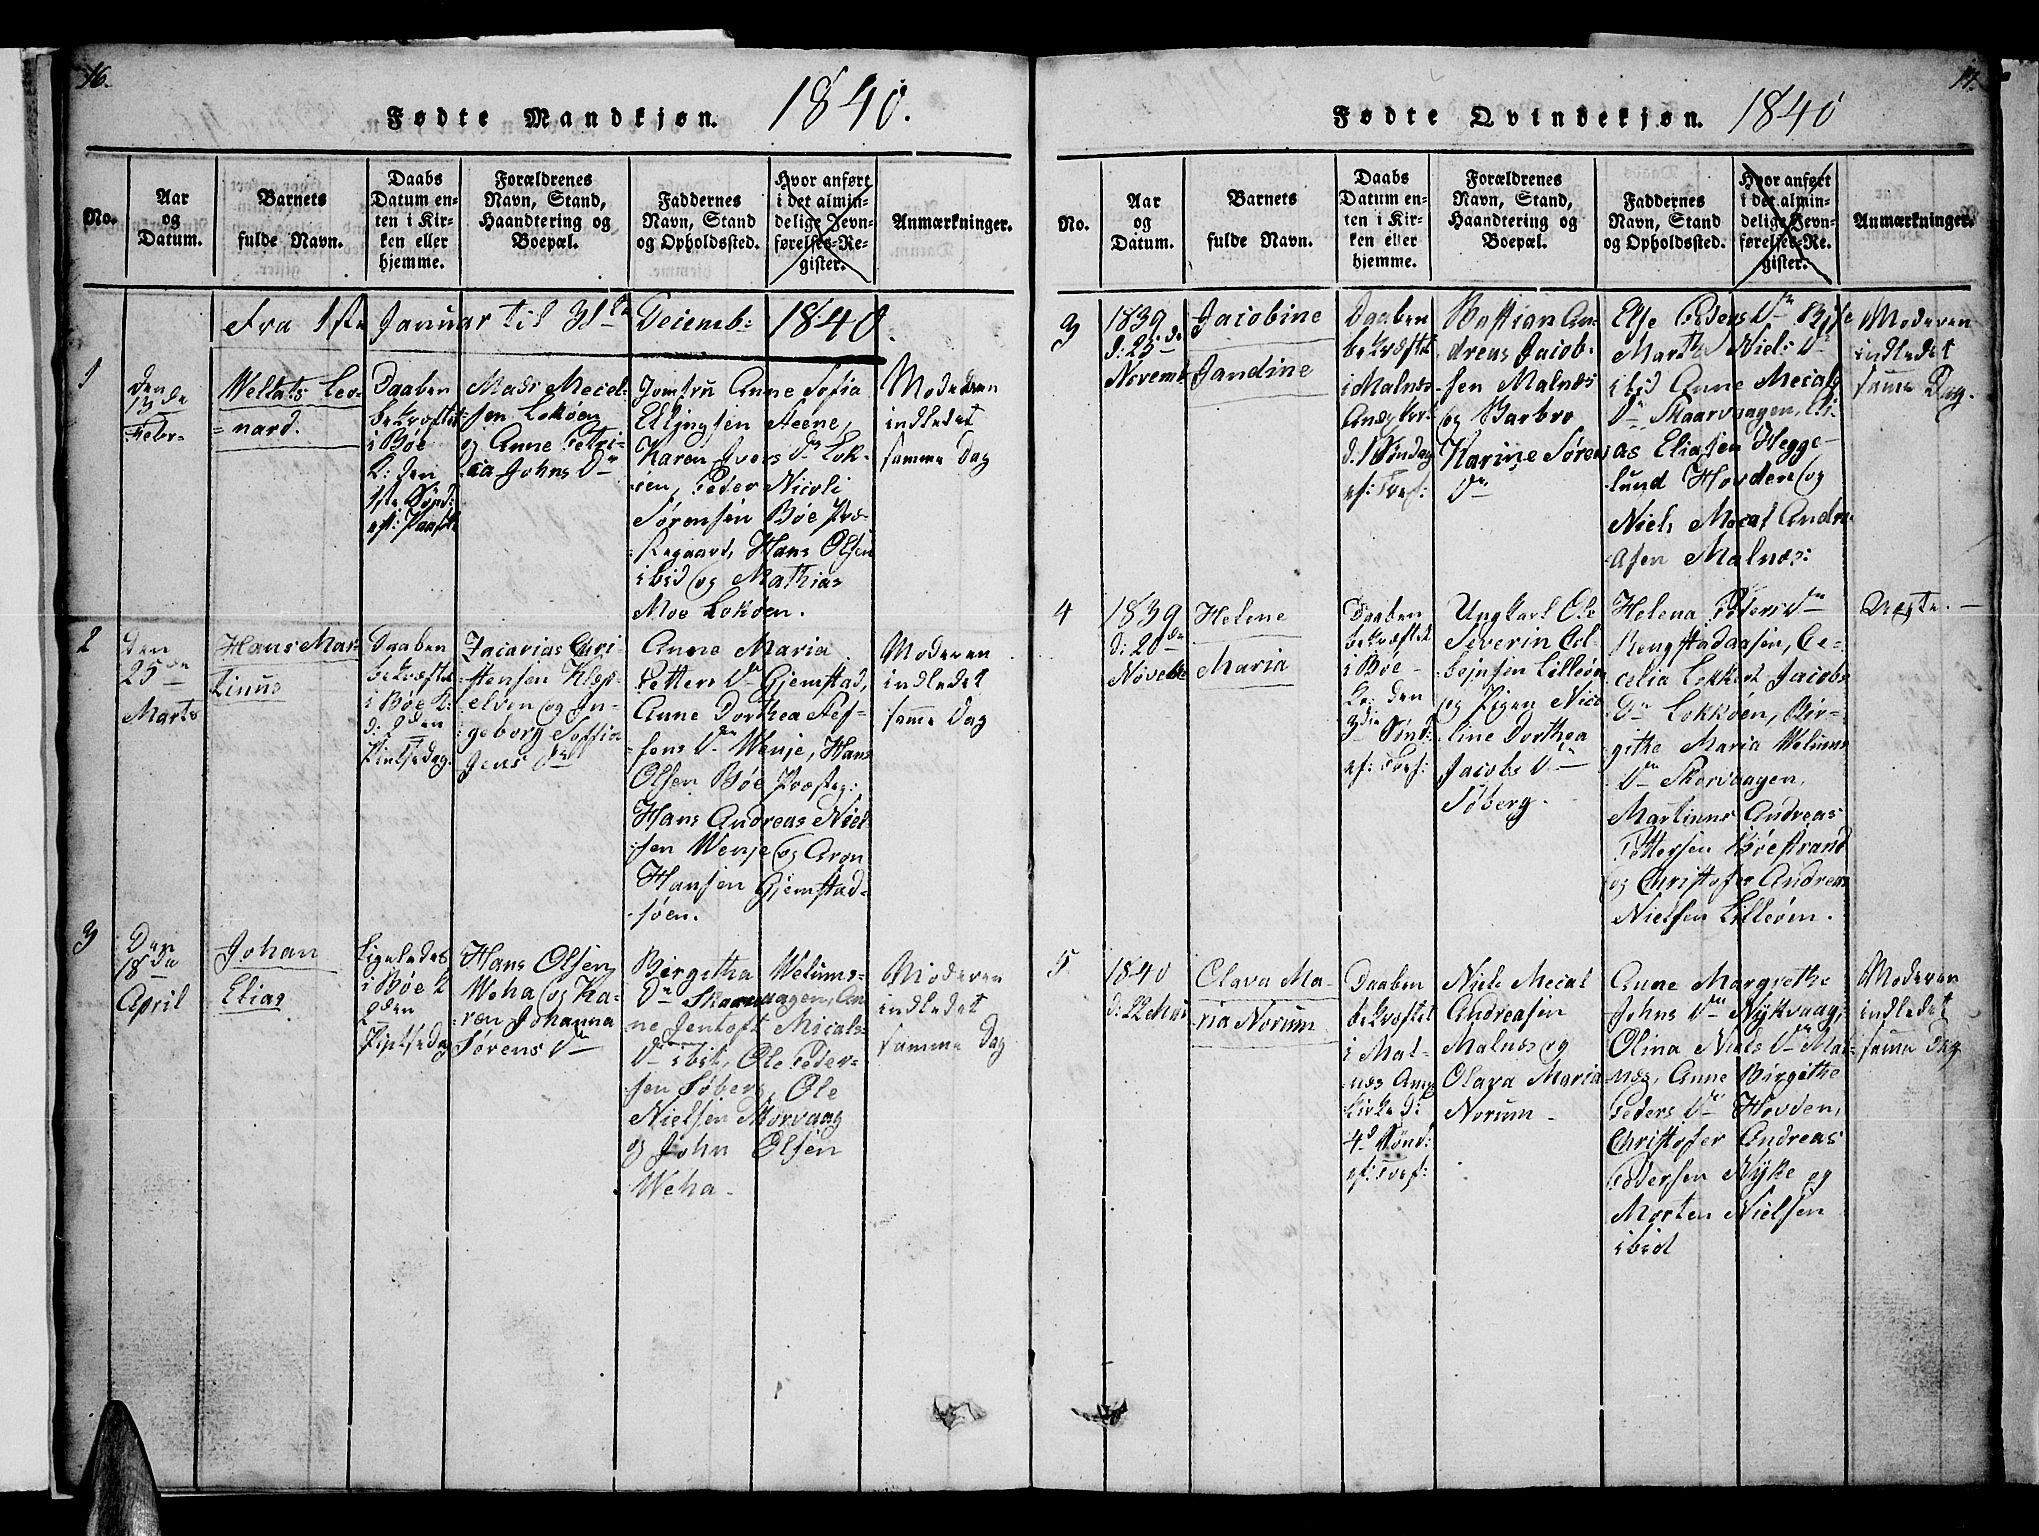 16.
Fødte Mandkjøn. 1840.
No.
Aar
og
Datum.
Barnets
fulde Navn.
Daabs
Datum en-
ten i Kir-
ken eller
hjemme.
Forældrenes
Navn, Stand,
Haandtering og
Boepæl.
Faddernes
Navn, Stand
og Opholdssted.
Hvor anført
i det almin-
delige Jevn-
førelses-Re-
gister.
Anmærkninger.
Fra 1ste Januar til 31te Decemb: 1840.
1
den
13de
Febr.
Weltats Leo-
nard.
Daaben
bekræftet
i Bøe
K: den
1ste Sønd:
eft: Paaske
Mads Mecel-
sen Lokøen
og Anne Petri-
cia Johns Dr
Jomfru Anne Sofia
Ellingsen Steene,
Karen Ivers Dr Lok-
øen, Peder Nicoli
Sørensen Bøe Præ-
stegaard, Hans Olsen
ibid og Mathias
Moe Lokøen.
Moderen
indledet
samme Dag
2
den
25de
Marts
Hans Mar-
tinus
Daaben
bekræftet
i Bøe K:
d: 2den
Pintsedag.
Zacarias Chri-
stensen Klep-
elven og In-
geborg Soffia
Jens Dr
Anne Maria
Petters Dr Gjemstad,
Anne Dorthea Jef-
sens Dr Wenje, Hans
Olsen Bøe Præsteg:
Hans Andreas Niel-
sen Wenje og Aron
Hansen Gjemstad-
søen.
Moderen
indledet
samme Dag
3
Den
18de
April
Johan
Elias
Ligeledes
i Bøe K
2den
Pintsedag
Hans Olsen
Weha og Ka-
ren Johanna
Sørens Dr
Birgitha Welums-
Dr Skaarvaagen, An-
ne Jentoft Micals-
Dr ibit, Ole Peder-
sen Søberg, Ole
Nielsen Skorvaag
og John Olsen
Weha.
Moderen
indledet
samme Dag
17.
Fødte Qvindekjøn. 1840
No.
Aar
og
Datum.
Barnets
fulde Navn.
Daabs
Datum en-
ten i Kir-
ken eller
hjemme.
Forældrenes
Navn, Stand,
Haandtering og
Boepæl.
Faddernes
Navn, Stand
og Opholdssted.
Hvor anført
i det almin-
delige Jevn-
førelses-Re-
gister.
Anmærkninger.
3
1839
d: 25de
Novemb
Jacobine
Jandine
Daaben
bekræftet
i Malnæs
Anexkir:
d. 1 Søndag
ef: Tref:
Bastian An-
dreas Jacob-
sen Malnæs
og Barbro
Karine Sørens
Dr
Else Peders Dr
Marth Niels Dr
ibid Anne Mecals
Dr Skaarvaagen, Eli-
as Eliasen Hegge-
lund Hovden og
Niels Mecal Andre-
asen Malnæs:
Moderen
indledet
samme Dag.
4
1839
d: 20de
Novebr
Helene
Maria
Daaben
bekræftet
i Bøe
K: den
3die Sønd:
ef: Tref:
Ungkarl Ole
Severin Col-
bejnsen Lilleøen
og Pigen Nico-
line Dorthea
Jacobs Dr
Søberg.
Helena Peders Dr
Rengstadaasen, Ce-
celia Lekkert Jacobs
Dr Lokkøen, Bir-
githe Maria Welums
Dr Skorvaagen,
Martinus Andreas
Pettersen Bøestrand
og Christofer Andreas
Nielsen Lilleøen.
Uægte.
5
1840
d: 22 Mai
Olava Ma-
ria Norum
Daaben
bekræftet
i Mal-
næs Anx
Kirke d:
4d Sønd:
ef: Tref:
Niels Mecal
Andreasen
Malnæs og
Olava Maria
Norum
Anne Margrethe
Johns Dr Nykvaag,
Olina Niels Dr Mal-
næs, Anne Birgithe
Peders Dr Hovden,
Christofer Andreas
Pedersen Nyke og
Morten Nielsen
ibid
Moderen
indledet
samme Dag